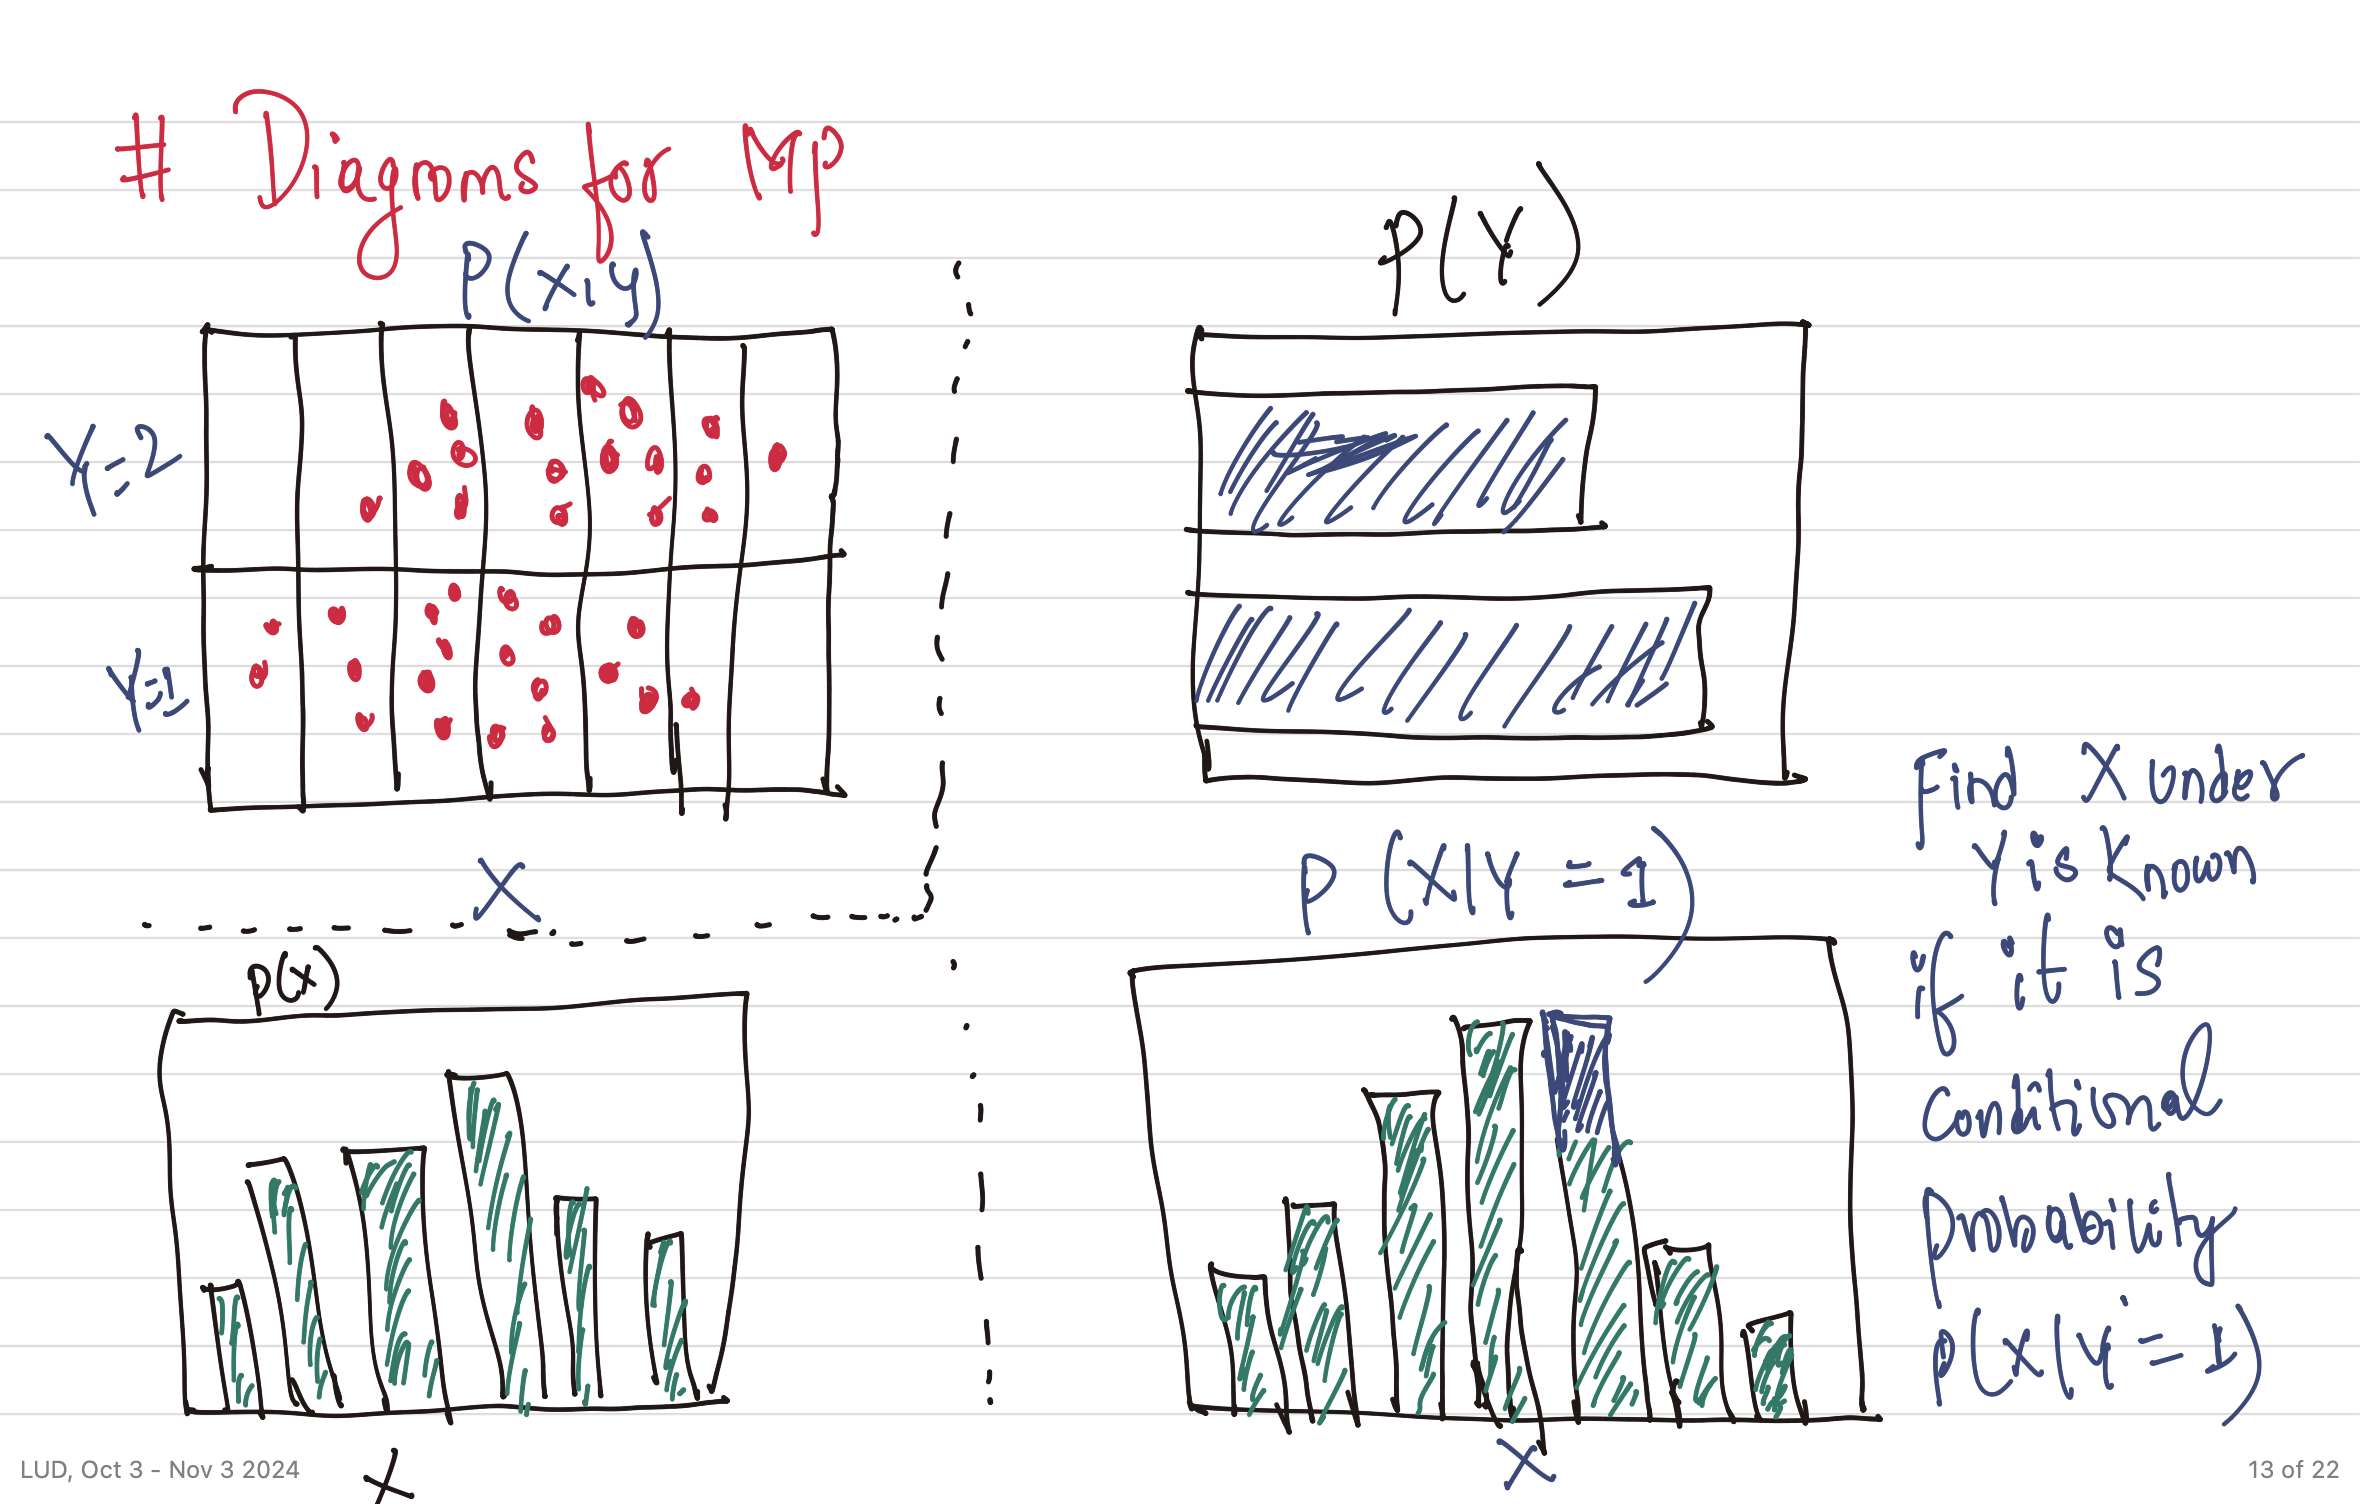 # Diagrams for MP
P(X,Y)
Y=2
Y=1
X
P(Y)
P(X)
X
P(X|Y=1)
X
Find X under
Y is known
if it is
Conditional
Probability
P(X|Y=1)
LUD, Oct 3 - Nov 3 2024
13 of 22